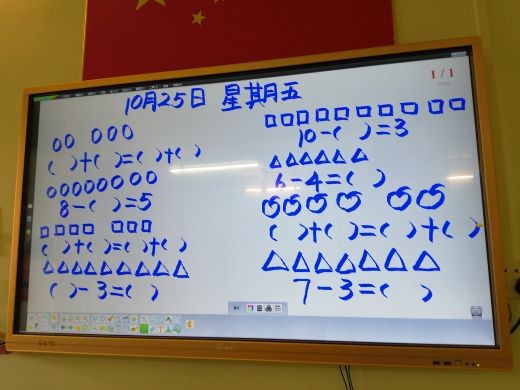 1/1
10月25日 星期五
( )+( )=( )+( )
8-( )=5
( )+( )=( )+( )
( )-3=( )
10-( )=3
6-4=( )
( )+( )=( )+( )
7-3=( )